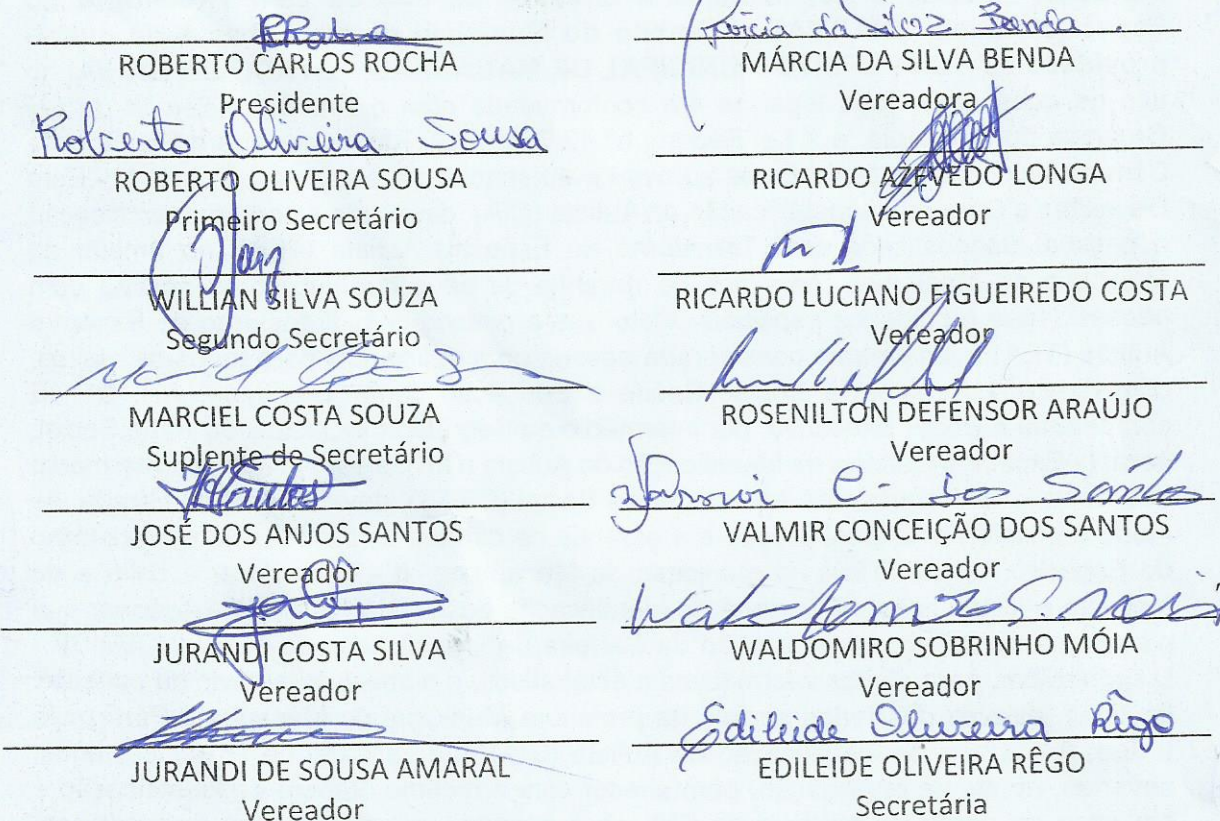 ROBERTO CARLOS ROCHA
Presidente
Roberto Oliveira Sousa
ROBERTO OLIVEIRA SOUSA
Primeiro Secretário
WILLIAN SILVA SOUZA
Segundo Secretário
MARCIEL COSTA SOUZA
Suplente de Secretário
JOSÉ DOS ANJOS SANTOS
Vereador
JURANDI COSTA SILVA
Vereador
JURANDI DE SOUSA AMARAL
Vereador
da Silva Benda
MÁRCIA DA SILVA BENDA
Vereadora
RICARDO AZEVEDO LONGA
Vereador
RICARDO LUCIANO FIGUEIREDO COSTA
Vereador
ROSENILTON DEFENSOR ARAÚJO
Vereador
C. dos Santos
VALMIR CONCEIÇÃO DOS SANTOS
Vereador
WALDOMIRO SOBRINHO MÓIA
Vereador
Edileide Oliveira Rêgo
EDILEIDE OLIVEIRA RÊGO
Secretária